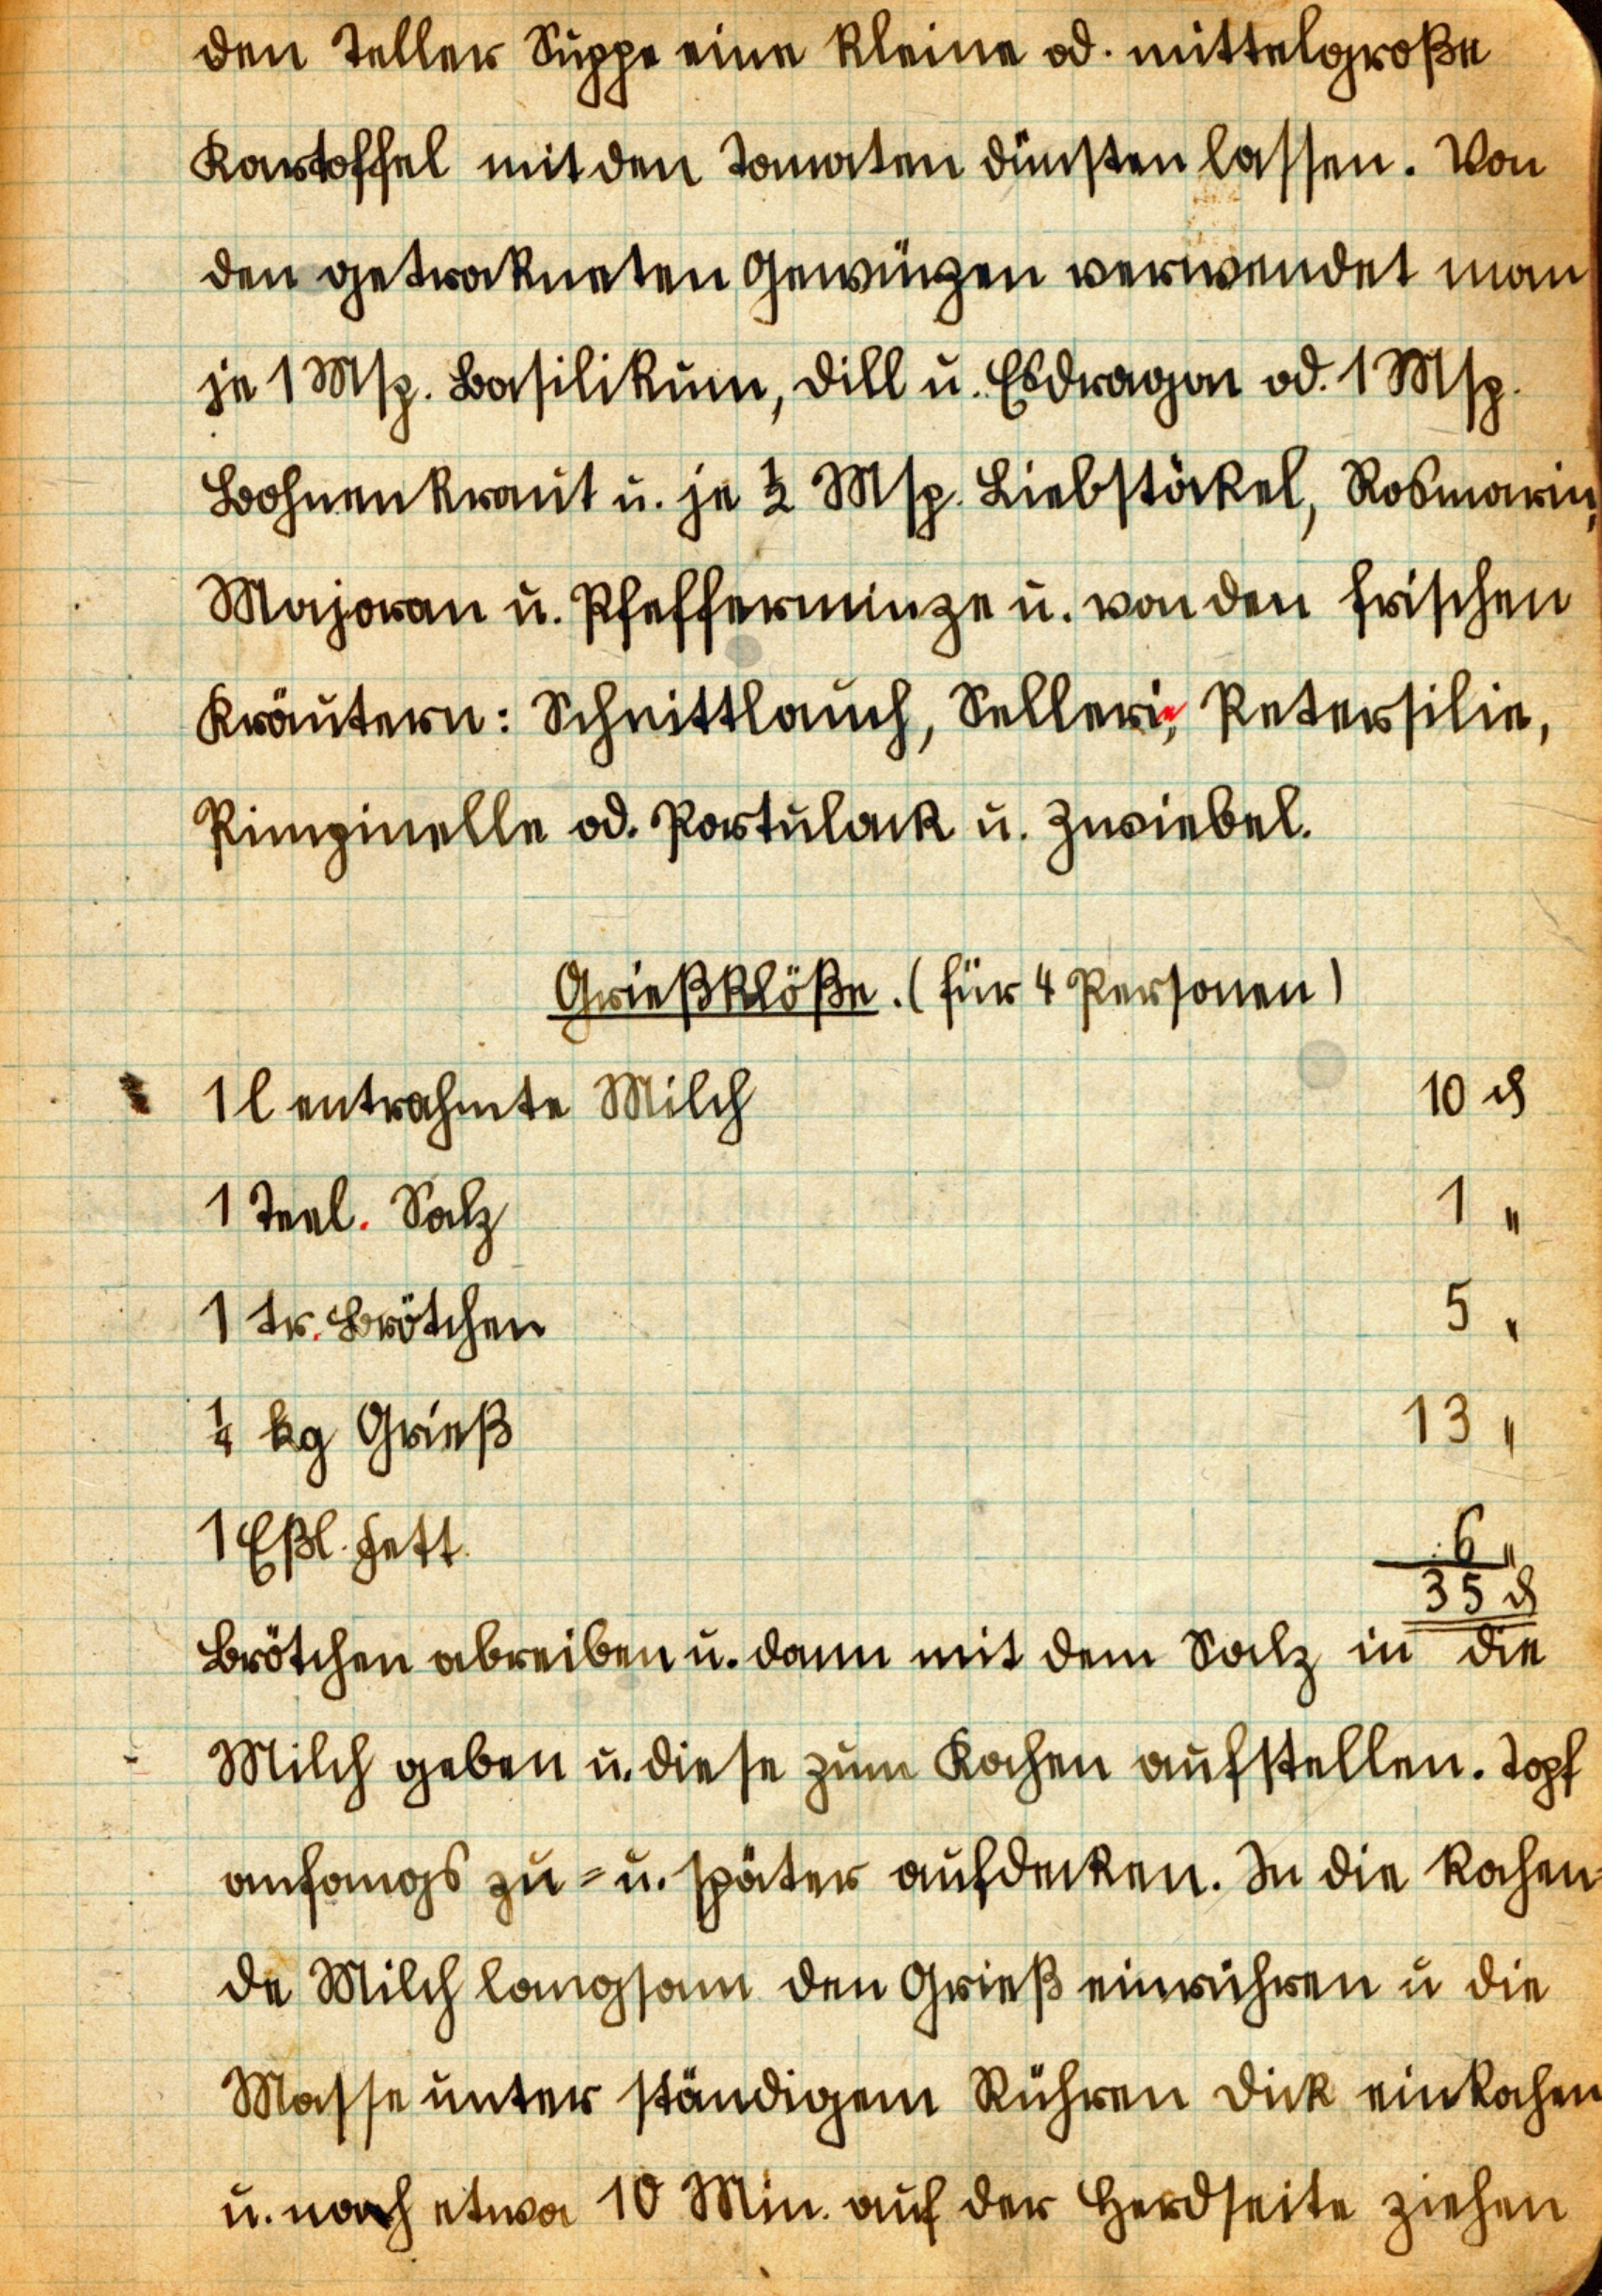 den Teller Suppe eine kleine od. mittelgroße
Kartoffel mit den Tomaten dünsten lassen. Von
den getrockneten Gewürzen verwendet man
je 1 Msp. Basilikum, Dill u. Esdragon od. 1 Msp.
Bohnenkraut u. je ½ Msp. Liebstöckel, Rosmarin,
Majoran u. Pfefferminze u. von den frischen
Kräutern: Schnittlauch, Sellerie, Petersilie,
Pimpinelle od. Portulack u. Zwiebel.
Grießklöße. (für 4 Personen)
1 l entrahmte Milch 10 ₰
1 Teel. Salz 1 "
1 tr. Brötchen 5 "
¼ kg Grieß 13 "
1 Eßl. Fett 6 "
35 ₰
Brötchen abreiben u. dann mit dem Salz in die
Milch geben u. diese zum Kochen aufstellen. Topf
anfangs zu= u. später aufdecken. In die kochen-
de Milch langsam den Grieß einrühren u die
Masse unter ständigem Rühren dick einkochen
u. noch etwa 10 Min. auf der Herdseite ziehen